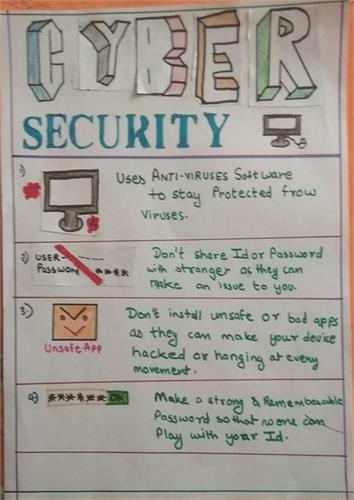 CYBER
SECURITY
1) Uses ANTI-VIRUSES Software
to stay Protected from
Viruses.
2) USER-
PASSWORD ****
Don't share Id or Password
with stranger as they can
make an issue to you.
3) Don't install unsafe or bad apps
as they can make your device
hacked or hanging at every
movement.
Unsafe-App
4) ****** OK
Make a strong & Rememberable
Password so that no one can
Play with your Id.